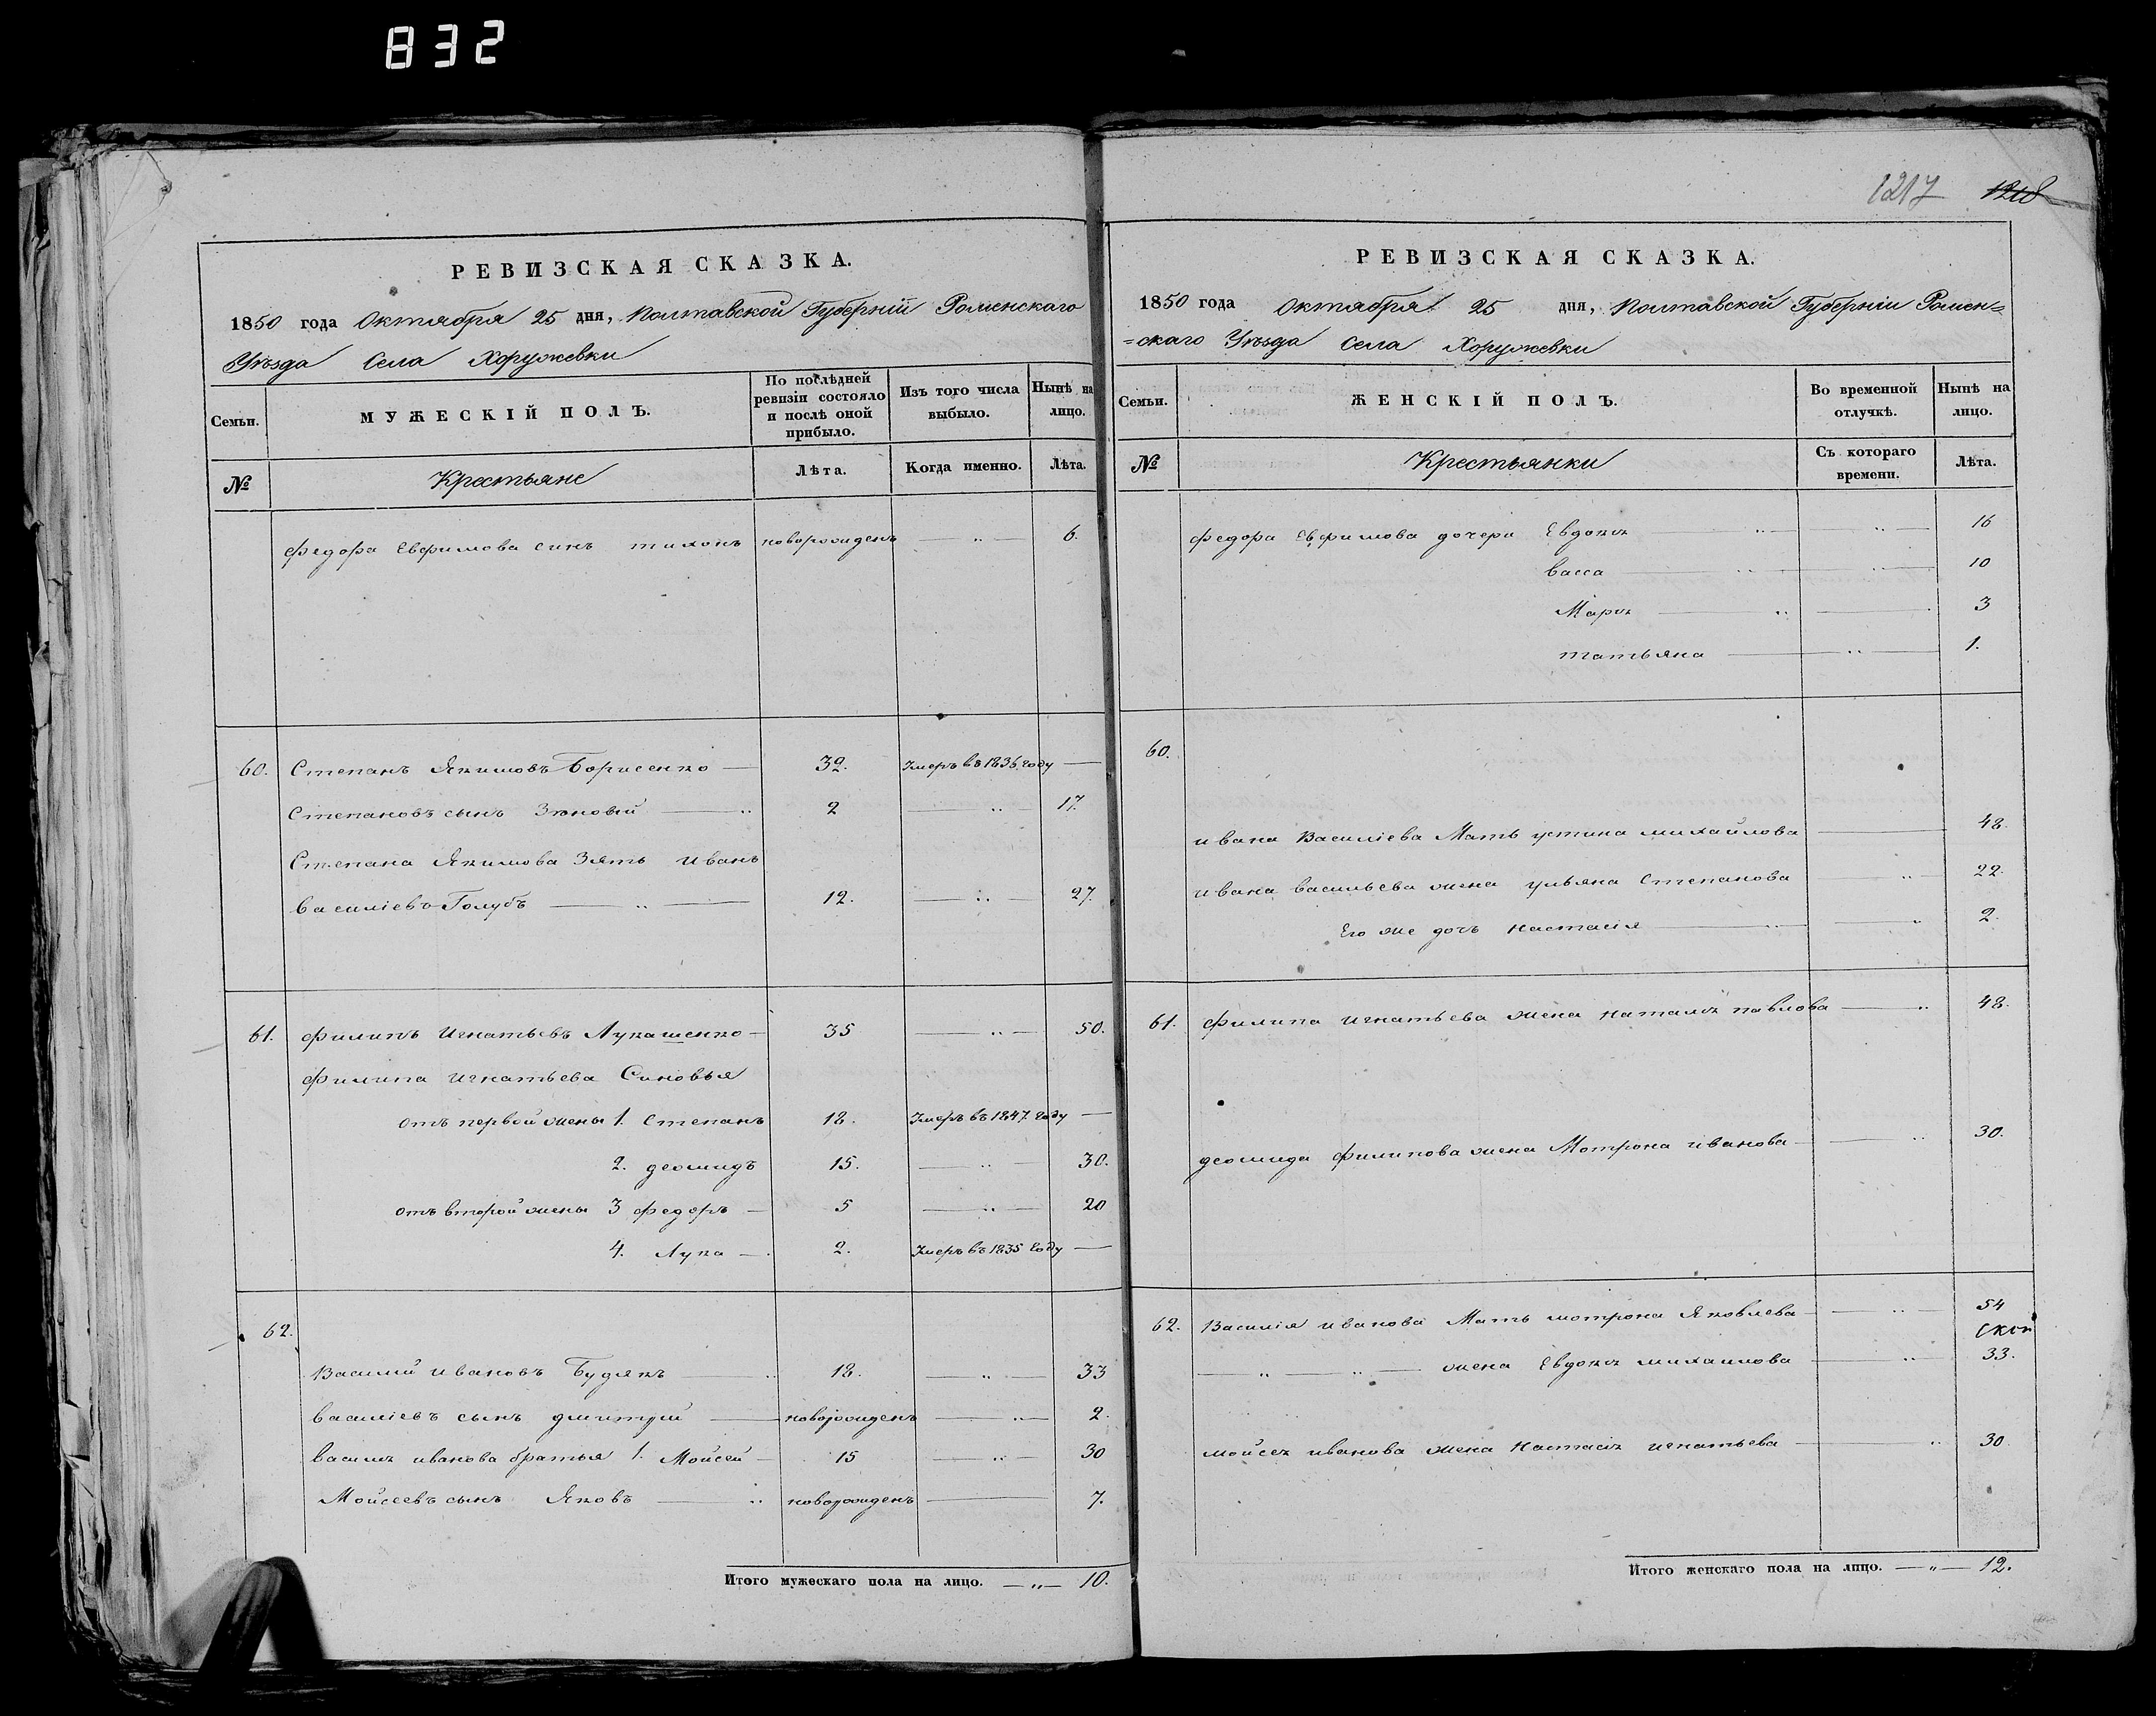 832
РЕВИЗСКАЯ СКАЗКА.
1850 года Октября 25 дня, Полтавской Губерніи Роменскаго
Уѣзда Села Хоружевки
Семьи.
МУЖЕСКІЙ ПОЛЪ.
По послѣдней ревизіи состояло и послѣ оной прибыло.
Изъ того числа выбыло.
Нынѣ на лицо.
№
Крестьяне
Лѣта.
Когда именно.
Лѣта.
Федора Евфимова синъ тихонъ новорожденъ — „ — 6.
60. Степанъ Якимовъ Борисенко — 32. Умеръ въ 1836 году —
Степановъ сынъ Зѣновій — „ 2 — „ — 17.
Степана Якимова Зять иванъ
василіевъ Голубъ — „ — 12. — „ — 27.
61. Филипъ Игнатьевъ Лукашенко — 35 — „ — 50.
Филипа игнатьева Синовья
отъ первой жены 1. Степанъ 18. Умеръ въ 1847 году —
2. деомидъ 15. — „ — 30.
отъ второй жены 3 федоръ — 5 — „ — 20
4. Лука — 2. Умеръ въ 1835 году —
62.
Василій ивановъ Будякъ — „ 18. — „ — 33
василіевъ сынъ дмитрій — новорожденъ — „ — 2.
василя иванова братья 1. Мойсей — 15 — „ — 30
Мойсеевъ сынъ Яковъ — „ новорожденъ — 7.
Итого мужескаго пола на лицо. — „ — 10.
1217 1218
РЕВИЗСКАЯ СКАЗКА.
1850 года Октября 25 дня, Полтавской Губерніи Ромен=
=скаго Уѣзда Села Хоружевки
Семьи.
ЖЕНСКІЙ ПОЛЪ.
Во временной отлучкѣ.
Нынѣ на лицо.
№
Крестьянки
Съ котораго времени.
Лѣта.
федора Евфимова дочери Евдокя — „ — „ — 16
васса — „ — „ — 10
Маря — „ — 3
татьяна — „ — 1.
60.
ивана Василіева Мать устина михайлова — 48.
ивана васильева жена ульяна Степанова — „ — 22.
Его же дочь настасія — „ — „ 2.
61. филипа игнатьева жена наталя павлова — „ 48.
деомида филипова жена Мотрона иванова — „ 30.
62. Василія иванова Мать мотрона Яковлева — „ — 54
— „ — „ — жена Евдокя михаилова — „ 33.
мойсея иванова жена настася игнатьева — „ 30.
Итого женскаго пола на лицо. — „ — 12.